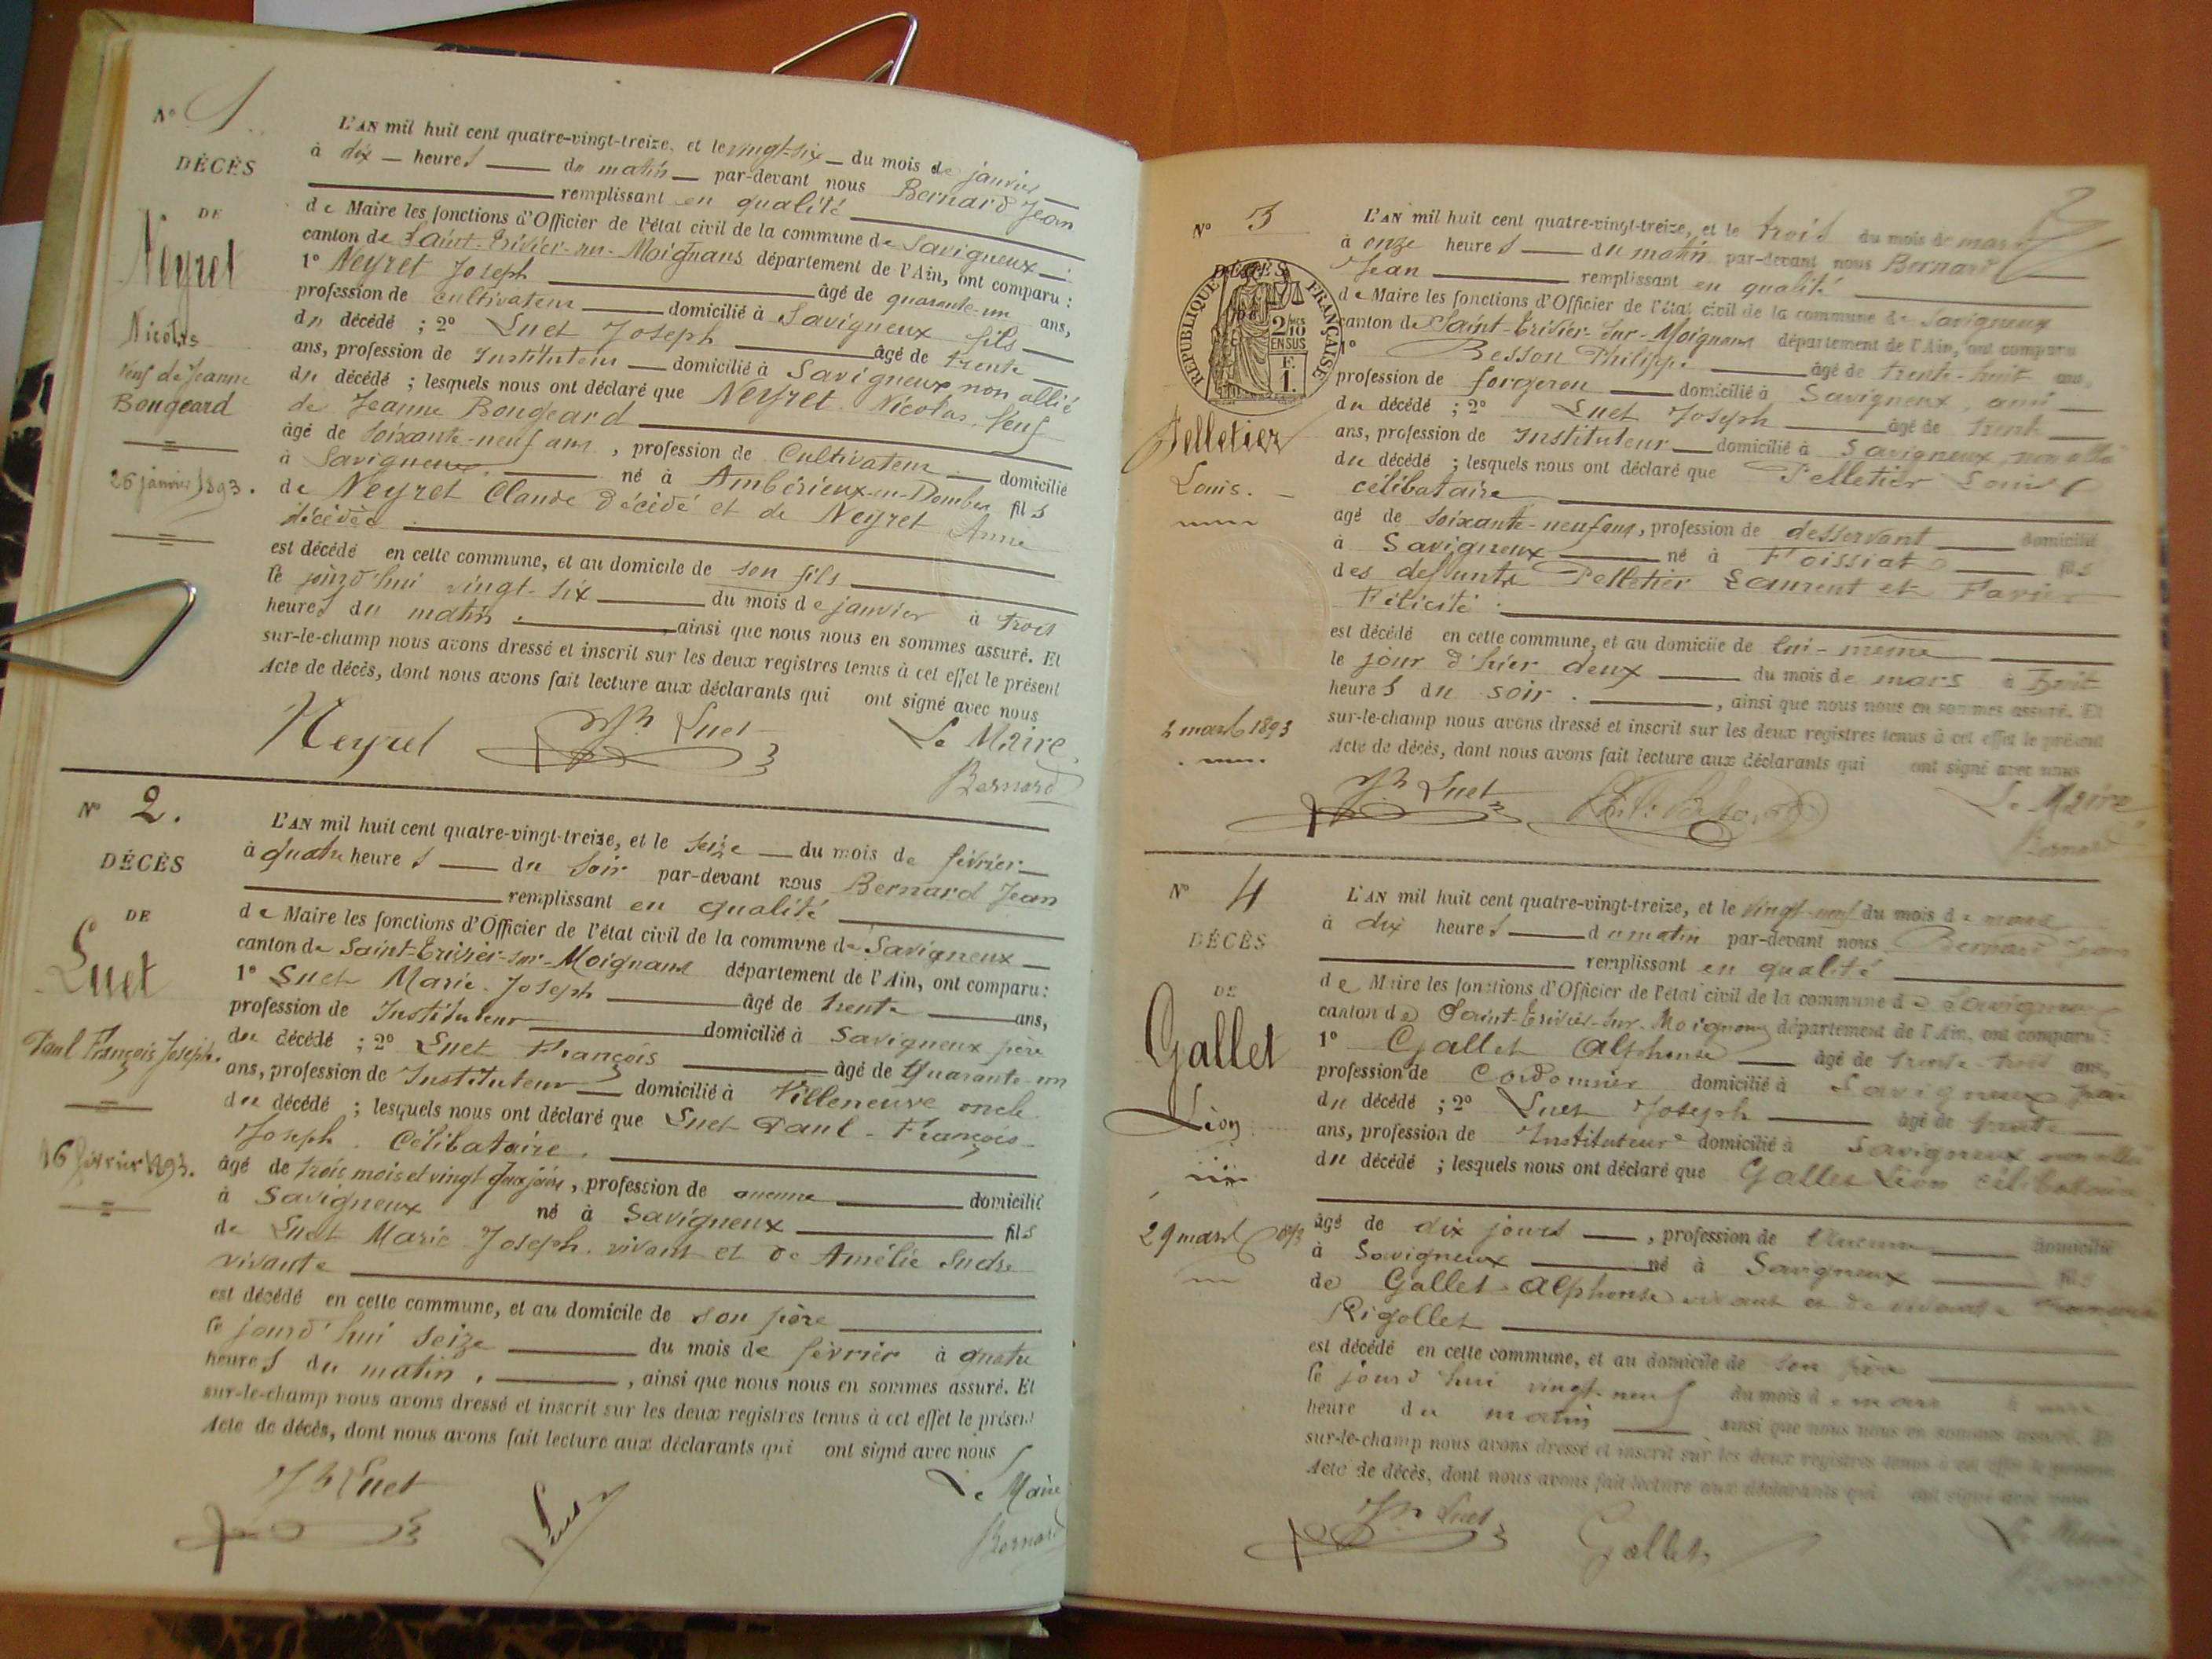 N° 1
DÉCÈS
DE
Neyret
Nicolas
veuf de Jeanne
Bougeard
26 janvier 1893.
L'AN mil huit cent quatre-vingt-treize, et le vingt-six du mois de janvier
à dix heures du matin par-devant nous Bernard Jean
remplissant en qualité
de Maire les fonctions d'Officier de l'état civil de la commune de Savigneux
canton de Saint-Trivier-sur-Moignans département de l'Ain, ont comparu :
1° Neyret Joseph âgé de quarante-un ans,
profession de cultivateur domicilié à Savigneux fils
du décédé ; 2° Luet Joseph âgé de trente
ans, profession de Instituteur domicilié à Savigneux non allié
du décédé ; lesquels nous ont déclaré que Neyret Nicolas, veuf
de Jeanne Bougeard
âgé de soixante-neuf ans, profession de Cultivateur domicilié
à Savigneux né à Ambérieux-en-Dombes fils
de Neyret Claude décédé et de Neyret Anne
décédée
est décédé en cette commune, et au domicile de son fils
le jourd'hui vingt-six du mois de janvier à trois
heures du matin. ainsi que nous nous en sommes assuré. Et
sur-le-champ nous avons dressé et inscrit sur les deux registres tenus à cet effet le présent
Acte de décès, dont nous avons fait lecture aux déclarants qui ont signé avec nous
Neyret Jh Luet Le Maire
Bernard
N° 2.
DÉCÈS
DE
Luet
Paul François Joseph.
16 février 1893.
L'AN mil huit cent quatre-vingt-treize, et le seize du mois de février
à quatre heures du soir par-devant nous Bernard Jean
remplissant en qualité
de Maire les fonctions d'Officier de l'état civil de la commune de Savigneux
canton de Saint-Trivier-sur-Moignans département de l'Ain, ont comparu :
1° Luet Marie-Joseph âgé de trente ans,
profession de Instituteur domicilié à Savigneux père
du décédé ; 2° Luet François âgé de Quarante-un
ans, profession de Instituteur domicilié à Villeneuve oncle
du décédé ; lesquels nous ont déclaré que Luet Paul-François-
Joseph. Célibataire.
âgé de trois mois et vingt jours, profession de aucune domicilié
à Savigneux né à Savigneux fils
de Luet Marie-Joseph. vivant et de Amélie Sudre
vivante
est décédé en cette commune, et au domicile de son père
le jourd'hui seize du mois de février à quatre
heures du matin, ainsi que nous nous en sommes assuré. Et
sur-le-champ nous avons dressé et inscrit sur les deux registres tenus à cet effet le présent
Acte de décès, dont nous avons fait lecture aux déclarants qui ont signé avec nous
Jh Luet Luet Le Maire
Bernard
2
N° 3
DÉCÈS
RÉPUBLIQUE FRANÇAISE
2/10
EN SUS
F.
1.
Pelletier
Louis.
2 mars 1893
L'AN mil huit cent quatre-vingt-treize, et le trois du mois de mars
à onze heures du matin par-devant nous Bernard
Jean remplissant en qualité
de Maire les fonctions d'Officier de l'état civil de la commune de Savigneux
canton de Saint-Trivier-sur-Moignans département de l'Ain, ont comparu
1° Besson Philippe âgé de trente-huit ans,
profession de forgeron domicilié à Savigneux, ami
du décédé ; 2° Luet Joseph âgé de trente
ans, profession de Instituteur domicilié à Savigneux, non allié
du décédé ; lesquels nous ont déclaré que Pelletier Louis
célibataire
âgé de soixante-neuf ans, profession de desservant domicilié
à Savigneux né à Foissiat fils
des defunts Pelletier Laurent et
Félicité.
est décédé en cette commune, et au domicile de lui-même
le jour d'hier deux du mois de mars à huit
heures du soir. , ainsi que nous nous en sommes assuré. Et
sur-le-champ nous avons dressé et inscrit sur les deux registres tenus à cet effet le présent
Acte de décès, dont nous avons fait lecture aux déclarants qui ont signé avec nous
Jh Luet Le Maire
Bernard
N° 4
DÉCÈS
DE
Gallet
Léon
29 mars 1893
L'AN mil huit cent quatre-vingt-treize, et le vingt-neuf du mois de mars
à dix heures du matin par-devant nous Bernard Jean
remplissant en qualité
de Maire les fonctions d'Officier de l'état civil de la commune de Savigneux
canton de Saint-Trivier-sur-Moignans département de l'Ain, ont comparu :
1° Gallet Alphonse âgé de trente-trois ans,
profession de Cordonnier domicilié à Savigneux père
du décédé ; 2° Luet Joseph âgé de trente
ans, profession de Instituteur domicilié à Savigneux non allié
du décédé ; lesquels nous ont déclaré que Gallet Léon célibataire
âgé de dix jours, profession de Aucune domicilié
à Savigneux né à Savigneux fils
de Gallet Alphonse vivant et de vivante
Rigollet
est décédé en cette commune, et au domicile de son père
le jourd'hui vingt-neuf du mois de mars à une
heure du matin ainsi que nous nous en sommes assuré. Et
sur-le-champ nous avons dressé et inscrit sur les deux registres tenus à cet effet le présent
Acte de décès, dont nous avons fait lecture aux déclarants qui ont signé avec nous
Jh Luet Gallet Le Maire
Bernard